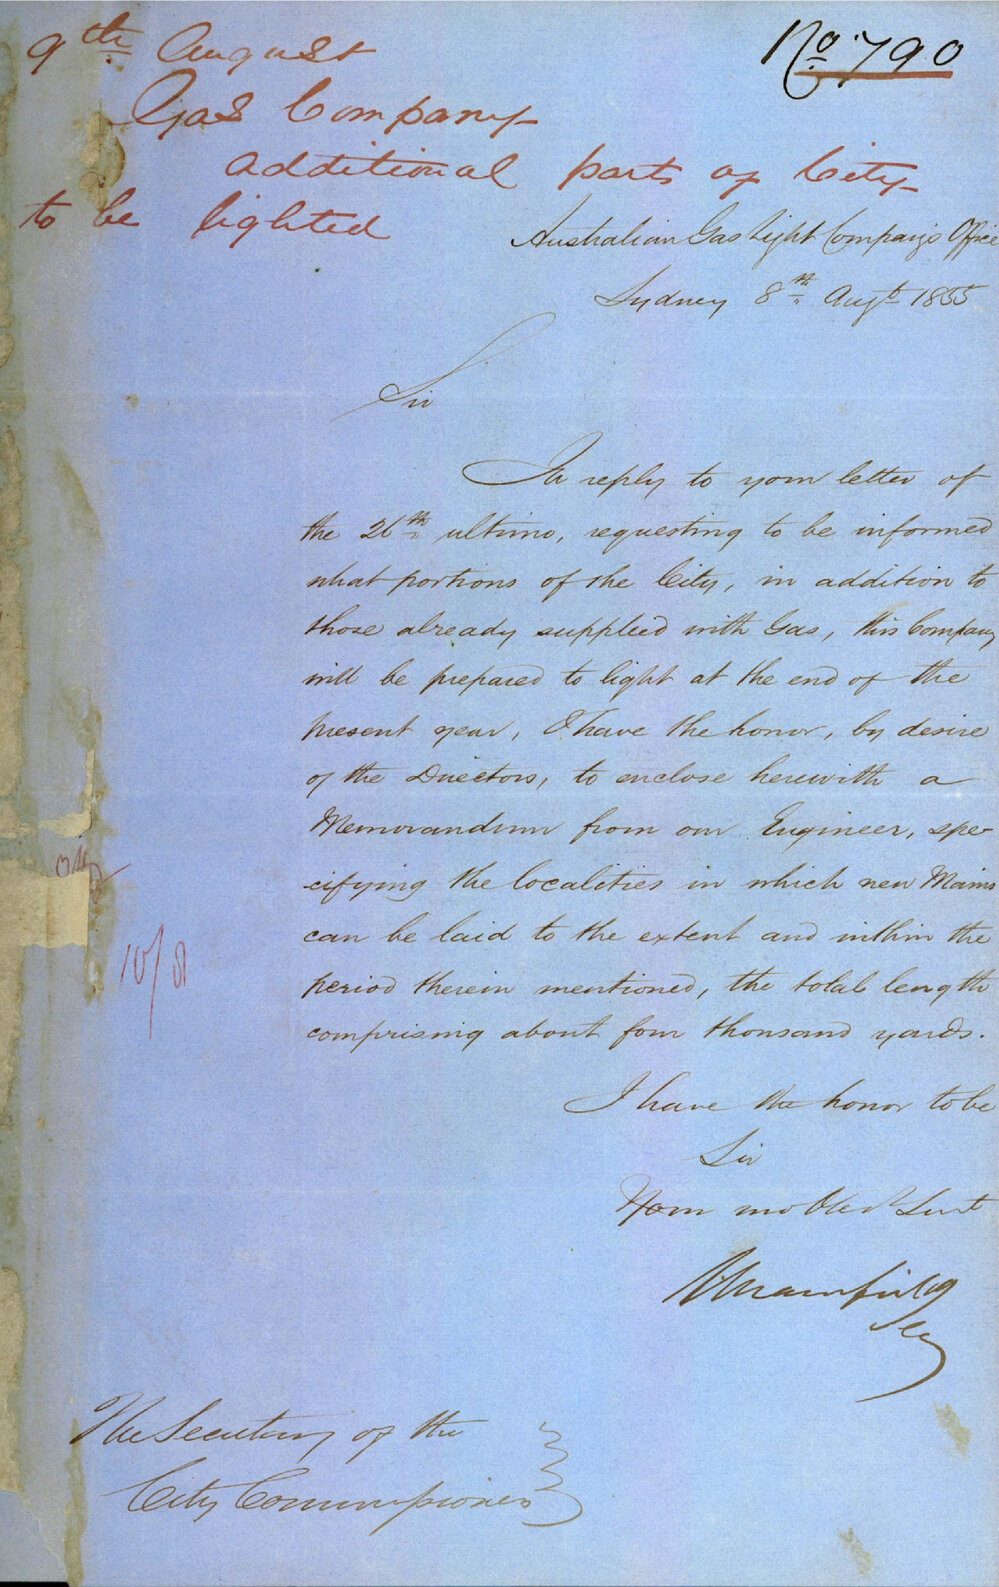 9th August
No. 790
Gas Company
additional parts of City
to be lighted
Australian Gas Light Company's Office
Sydney 8th Augt 1855
Sir
In reply to your letter of
the 26th ultimo, requesting to be informed
what portions of the City, in addition to
those already supplied with Gas, this Company
will be prepared to light at the end of the
present year, I have the honor, by desire
of the Directors, to enclose herewith a
Memorandum from our Engineer, spe-
-cifying the localities in which new Mains
can be laid to the extent and within the
period therein mentioned, the total length
comprising about four thousand yards.
10/8
I have the honor to be
Sir
Your mo Obed Servt
Mansfield
Sey
The Secretary of the
City Commissioners